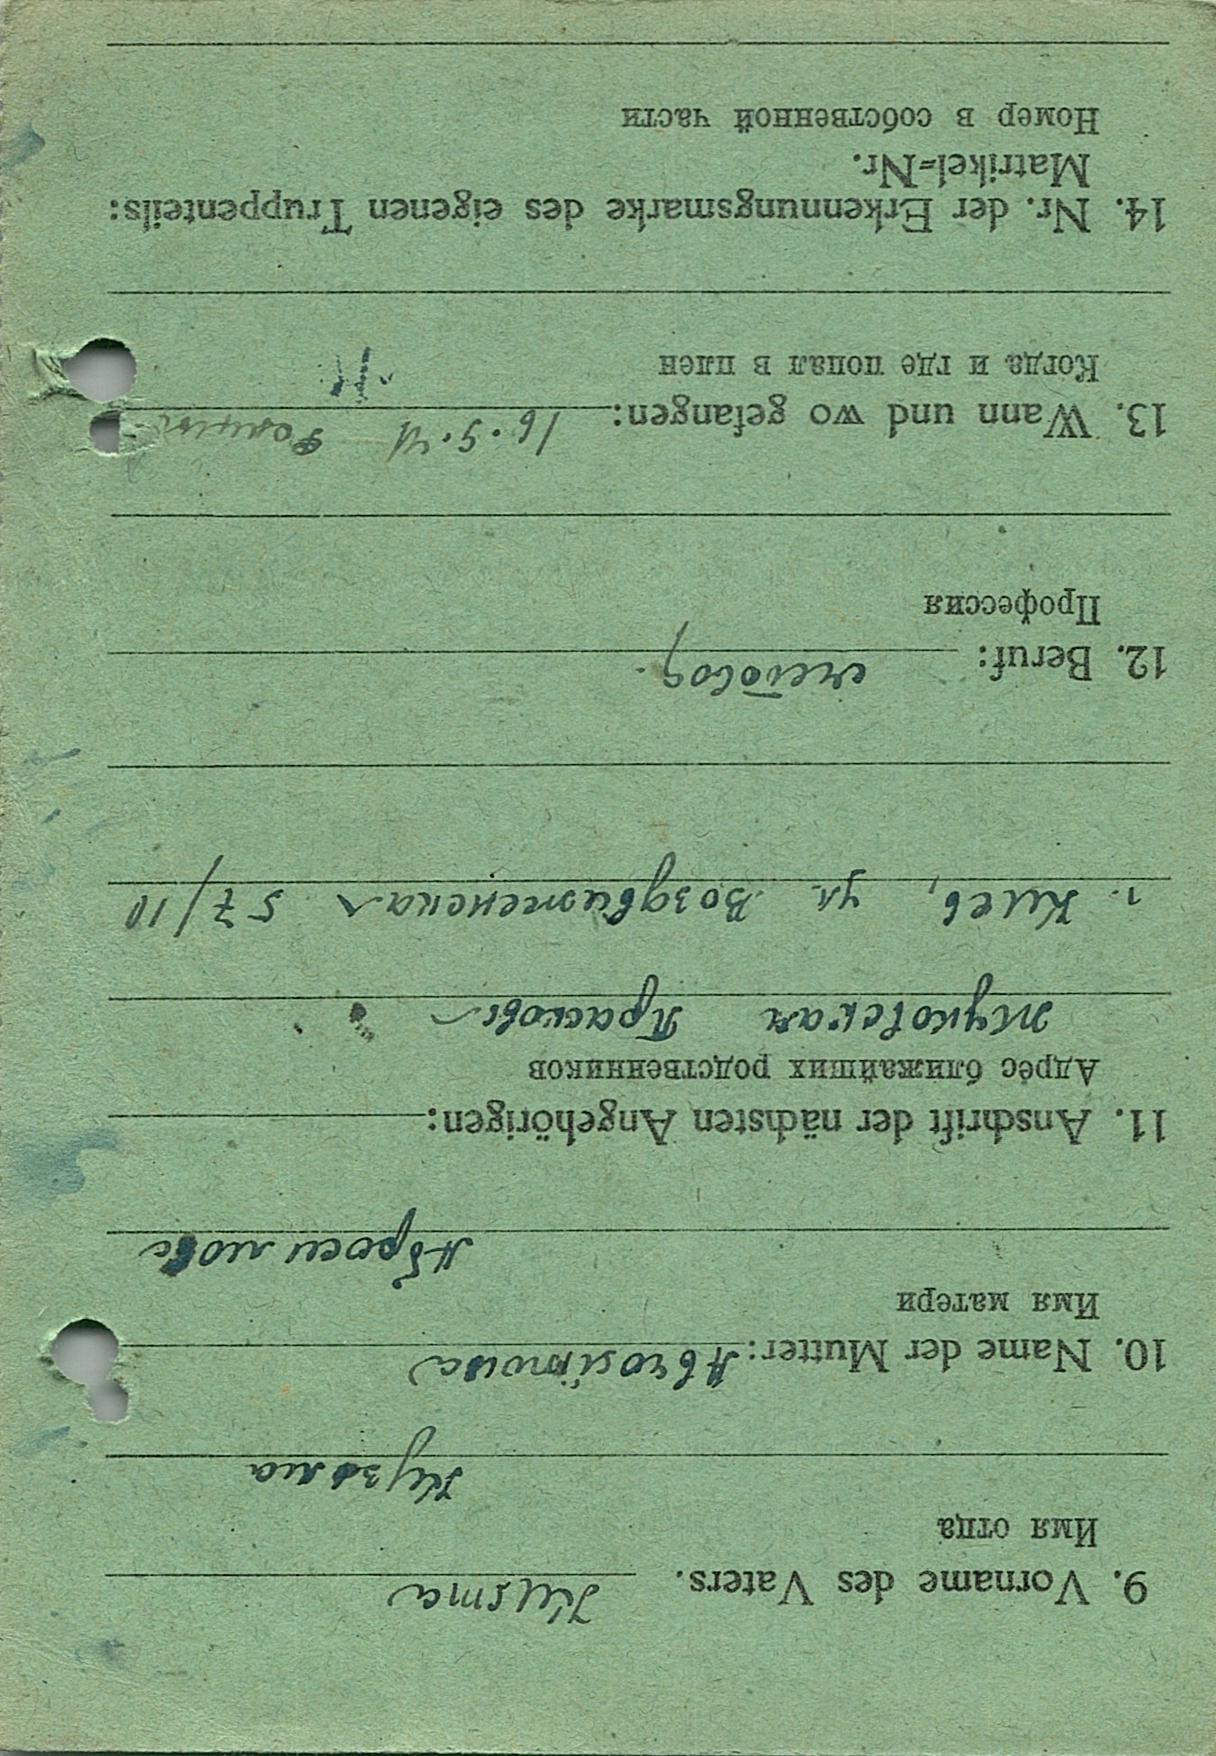 9. Vorname des Vaters. Kusma
Имя отца
Кузьма
10. Name der Mutter: Abrosimowa
Имя матери
Абросимова
11. Anschrift der nächsten Angehörigen:
Адрес ближайших родственников
Жуковская Прасковья
г. Киев, ул. Воздвиженская 57/10
12. Beruf: счетовод.
Профессия
13. Wann und wo gefangen: 16.9.41
Когда и где попал в плен
14. Nr. der Erkennungsmarke des eigenen Truppenteils:
Matrikel=Nr.
Номер в собственной части